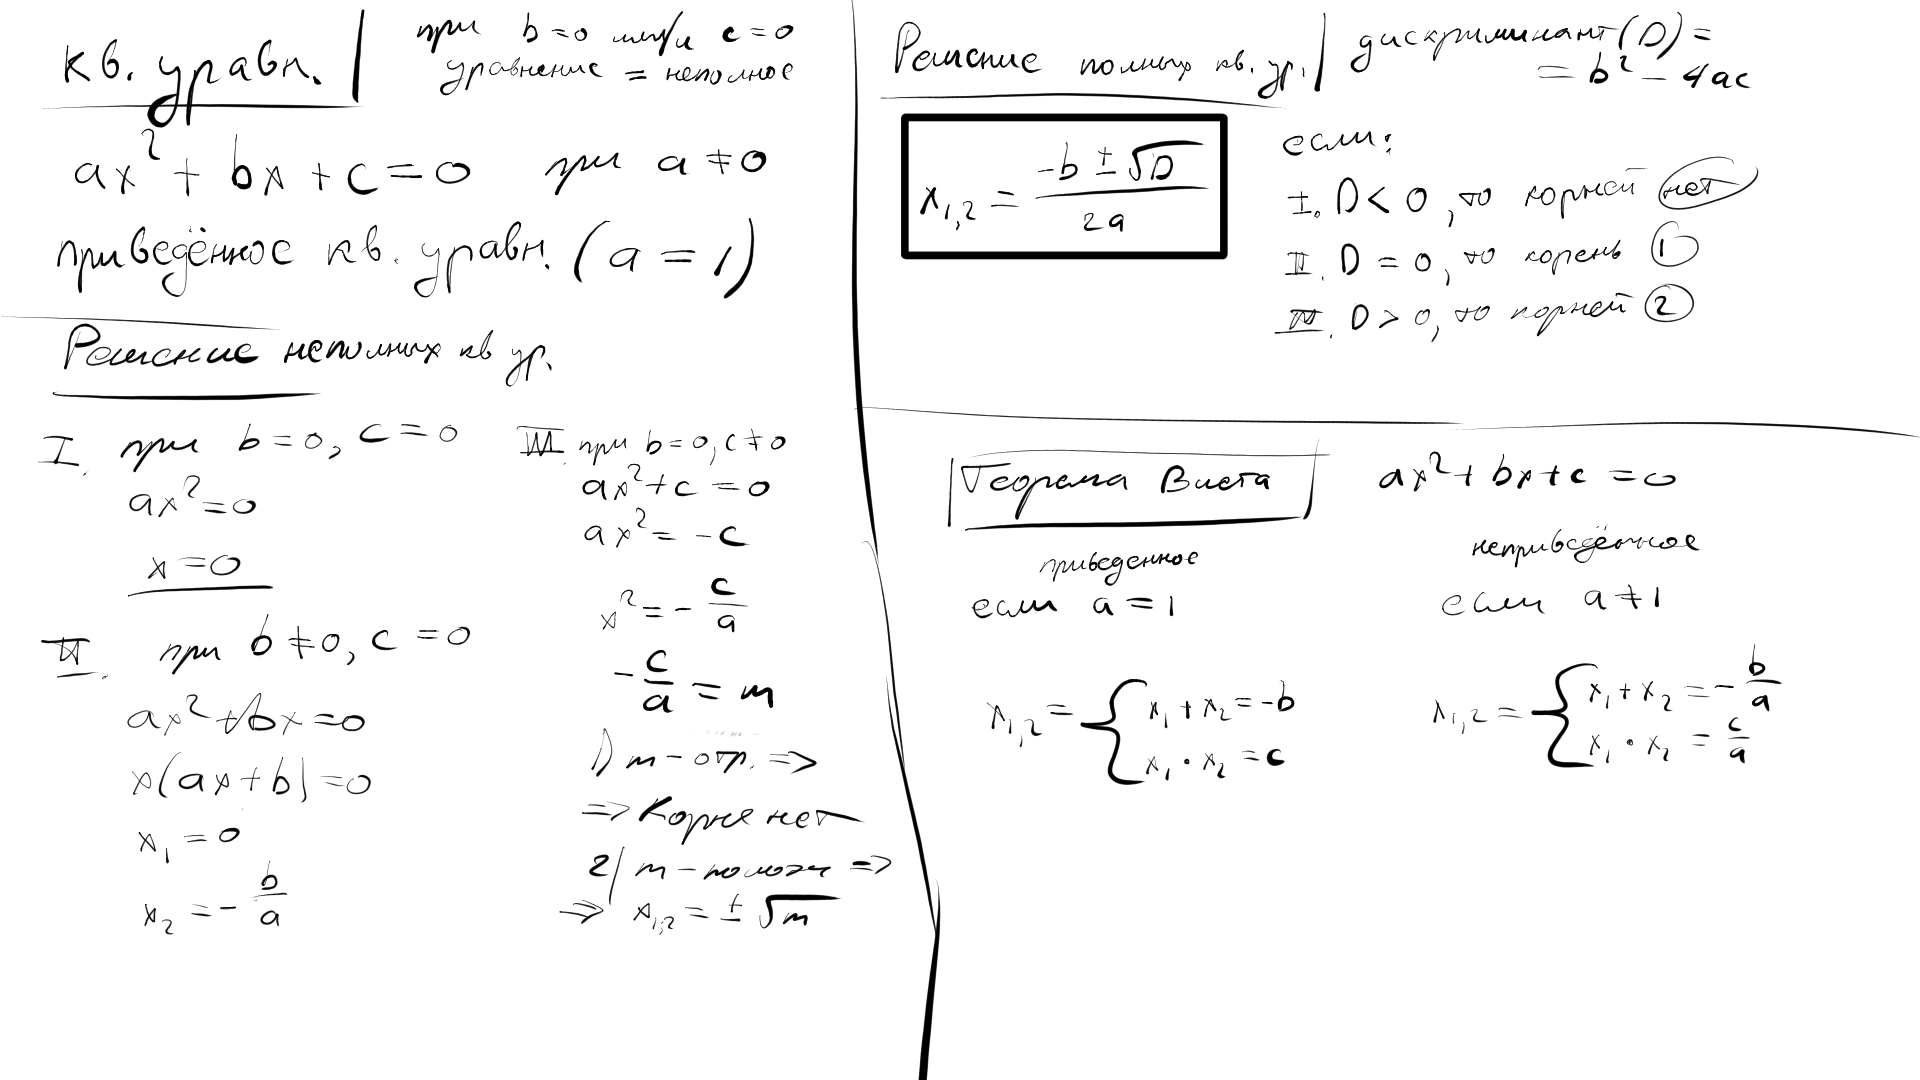 кв. уравн.
при b=0 или/и c=0
уравнение = неполное
ax² + bx + c = 0 при a ≠ 0
приведённое кв. уравн. (a = 1)
Решение неполных кв ур.
I. при b=0, c=0
ax²=0
x=0
II. при b≠0, c=0
ax²+bx=0
x(ax+b)=0
x₁ = 0
x₂ = - b/a
III. при b=0, c≠0
ax²+c=0
ax²= -c
x²= - c/a
- c/a = m
1) m - отр. =>
=> Корне нет
2) m - полож =>
=> x₁,₂ = ± √m
Решение полных кв. ур.
дискриминант (D) =
= b² - 4ac
x₁,₂ = (-b ± √D)/2a
если:
I. D < 0, то корней нет
II. D = 0, то корень 1
III. D > 0, то корней 2
Теорема Виета
ax²+bx+c=0
приведенное
если a = 1
x₁,₂ = { x₁ + x₂ = -b
x₁ · x₂ = c
неприведённое
если a ≠ 1
x₁,₂ = { x₁ + x₂ = - b/a
x₁ · x₂ = c/a